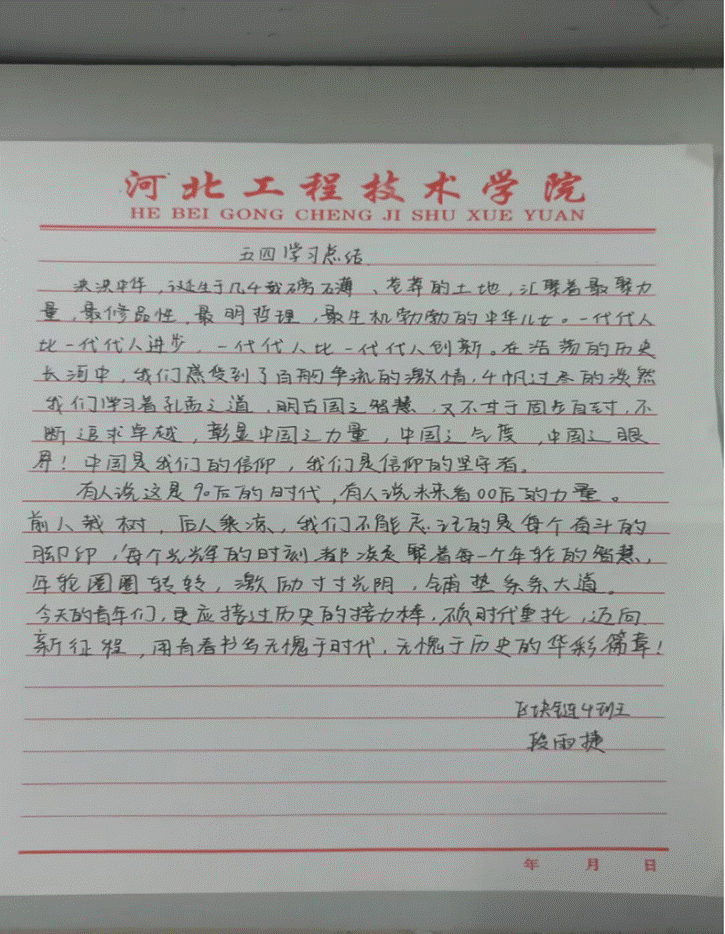 河北工程技术学院
HE BEI GONG CHENG JI SHU XUE YUAN
五四学习总结
泱泱中华，诞生于几千载磅礴、苍莽的土地，汇聚着最聚力
量，最修品性，最明哲理，最生机勃勃的中华儿女。一代代人
比一代代人进步，一代代人比一代代人创新。在浩荡的历史
长河中，我们感受到了百舸争流的激情，千帆过尽的淡然
我们学习着孔孟之道，明古国之智慧，又不甘于固步自封，不
断追求卓越，彰显中国之力量，中国之气度，中国之眼
界！中国是我们的信仰，我们是信仰的坚守者。
有人说这是90后的时代，有人说未来看00后的力量。
前人栽树，后人乘凉，我们不能忘记的是每个奋斗的
脚印，每个光辉的时刻都凝聚着每一个年轮的智慧，
年轮圈圈转转，激励寸寸光阴，铺垫条条大道。
今天的青年们，更应接过历史的接力棒，不负时代重托，迈向
新征程，用青春书写无愧于时代，无愧于历史的华彩篇章！
区块链4班
段雨捷
年 月 日